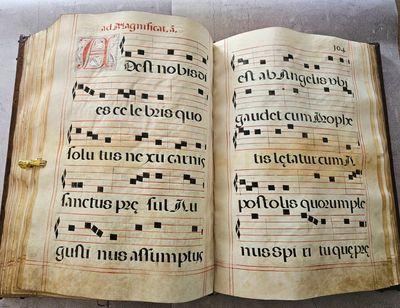 ad Magnificat. ā.
ADest nobis di
es ce le bris quo
solu tus ne xu carnis
sanctus prę sul Au
gusti nus assumptus
104
est ab Angelis vbi
gaudet cum Prophe
tis lętatur cum A
postolis quorum ple
nus spi ri tu quę prę